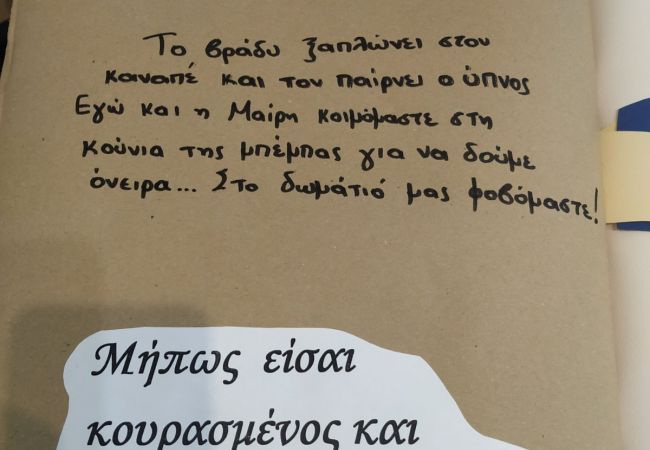 Το βράδυ ξαπλώνει στον
καναπέ και τον παίρνει ο ύπνος
Εγώ και η Μαίρη κοιμόμαστε στη
κούνια της μπέμπας για να δούμε
όνειρα... Στο δωμάτιό μας φοβόμαστε!
Μήπως είσαι
κουρασμένος και